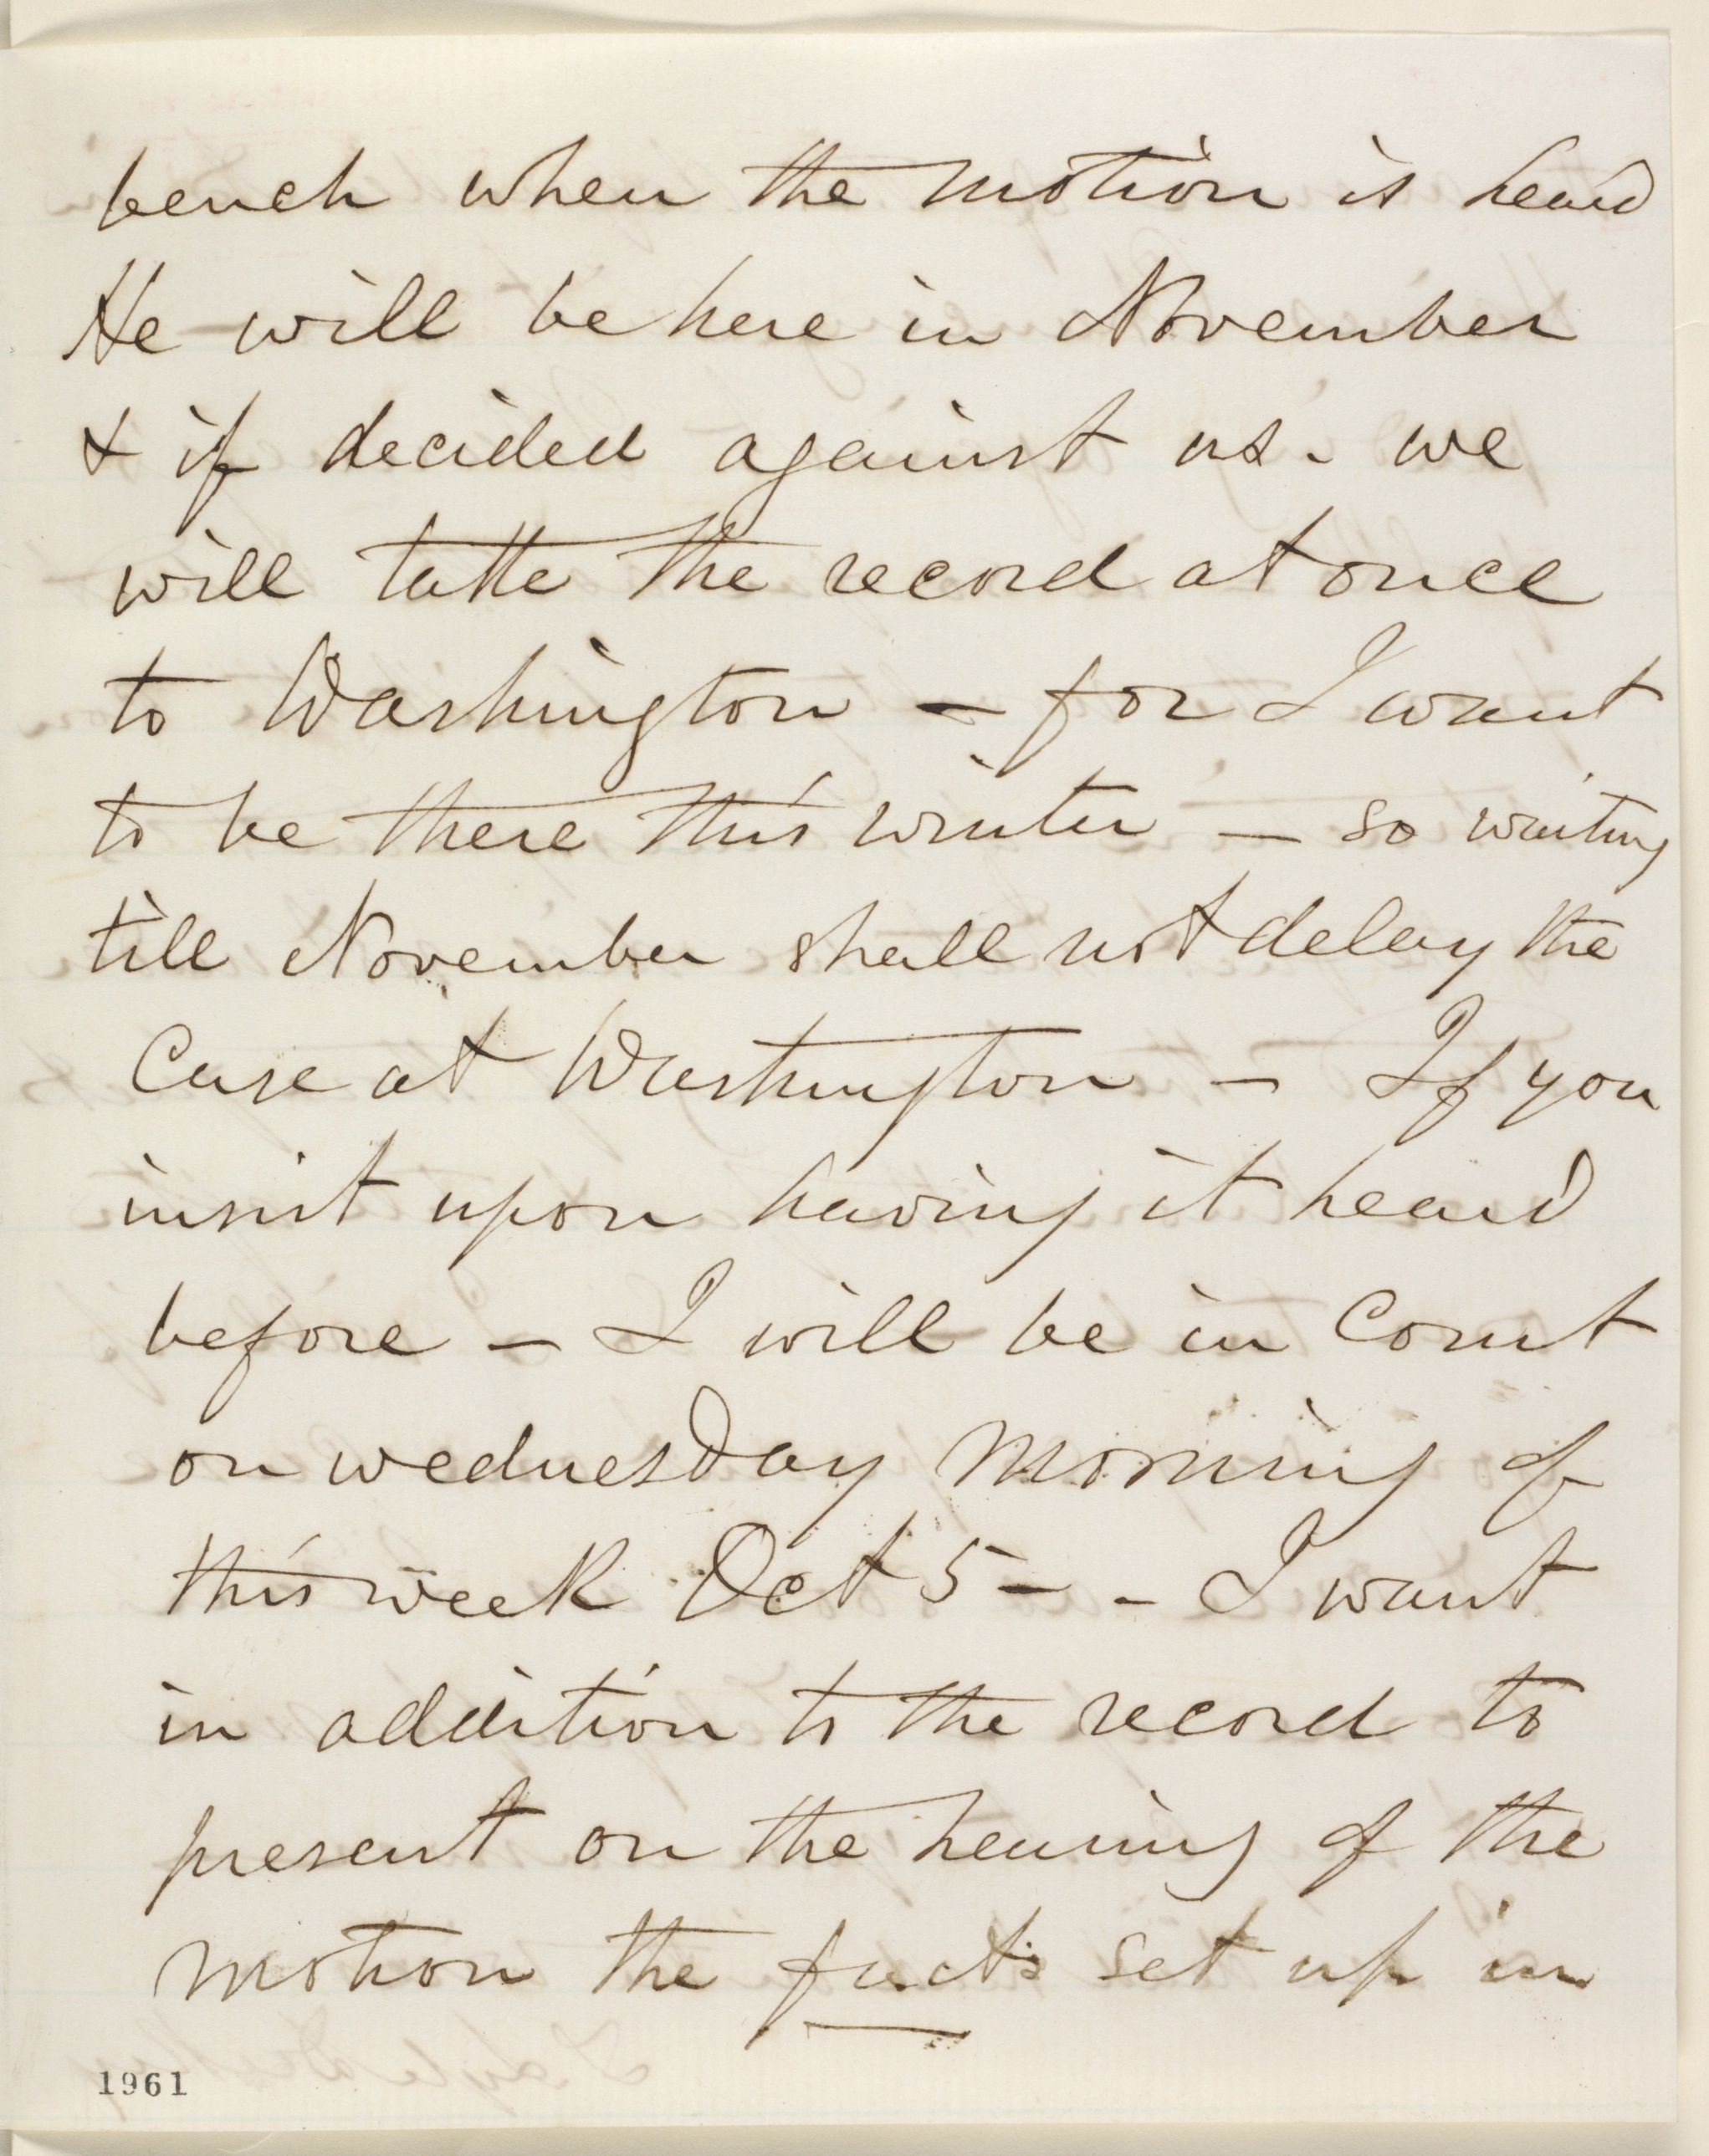 bench when the motion is heard
He will be here in November
& if decided against us. we
will take the record at once
to Washington – for I want
to be there this winter – so waiting
till November shall not delay the
Case at Washington – If you
insist upon having it heard
before – I will be in Court
on wednesday morning of
this week Oct 5 – – I want
in addition to the record to
present on the hearing of the
motion the facts set up in
1961